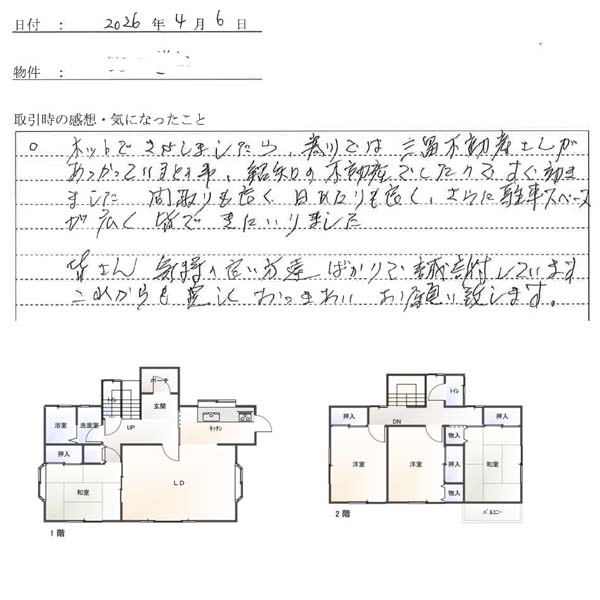 日付 : 2026 年 4 月 6 日
物件 :
取引時の感想・気になったこと
○ ネットでさがしましたら、寄りでは三冨不動産さんが
あつかっているとの事、認知の不動産でしたのですぐ動き
ました 間取りも良く 日あたりも良く、さらに駐車スペース
が広く皆できにいりました
皆さん 気持の良い方達ばかりで感謝しています
これからも宜しくおつきあい お願い致します。
ポーチ
トイレ
玄関
浴室
洗面室
UP
キッチン
押入
和室
LD
1階
トイレ
押入
DN
押入
物入
洋室
洋室
押入
和室
物入
バルコニー
2階